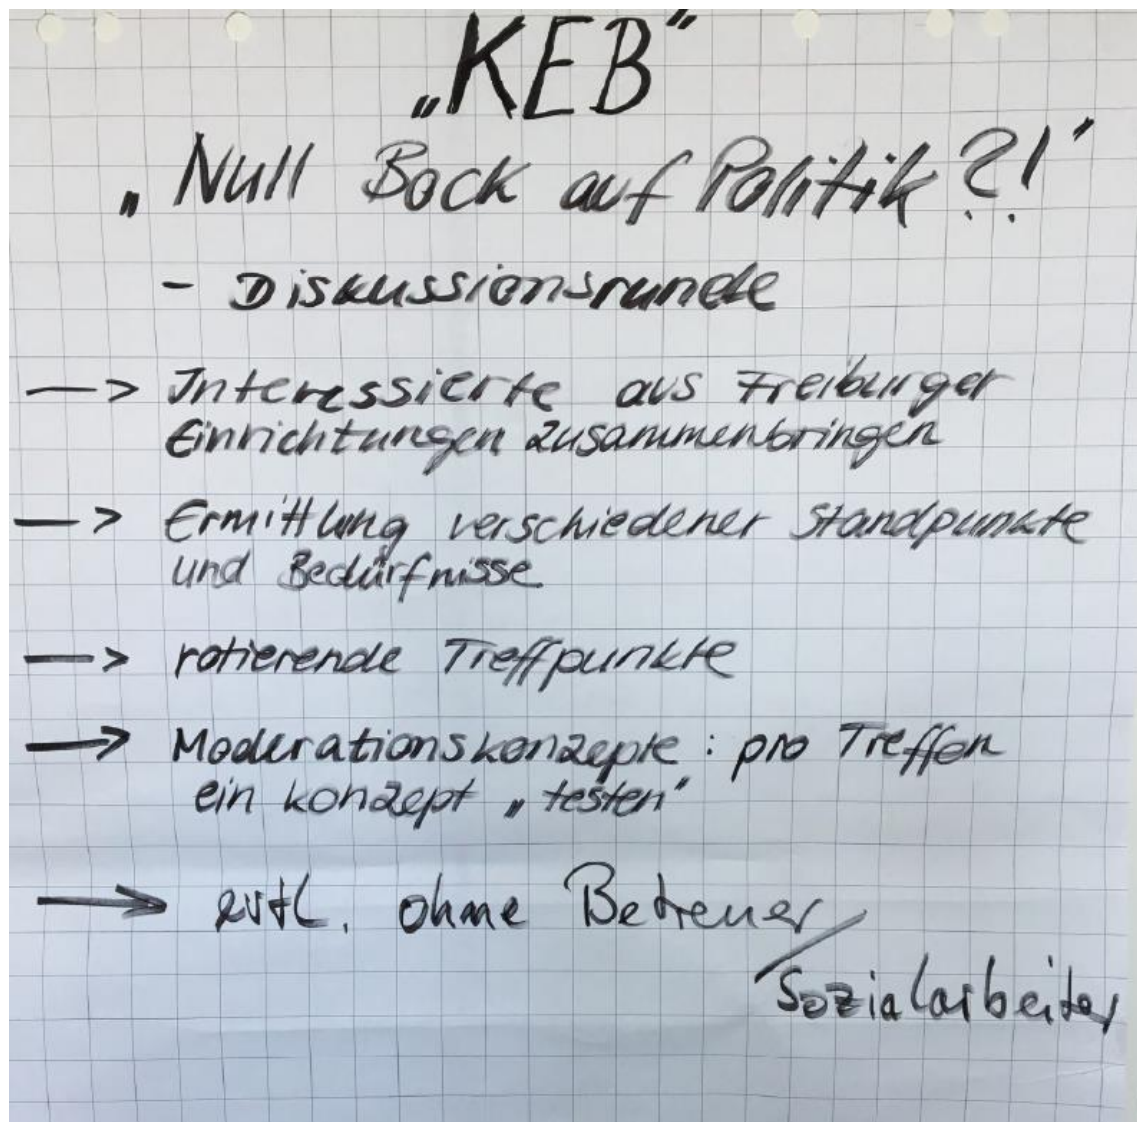 „KEB“
„Null Bock auf Politik?!“
- Diskussionsrunde
—> Interessierte aus Freiburger
Einrichtungen zusammenbringen
—> Ermittlung verschiedener Standpunkte
und Bedürfnisse
—> rotierende Treffpunkte
—> Moderationskonzepte: pro Treffen
ein Konzept „testen“
—> evtl. ohne Betreuer/
Sozialarbeiter